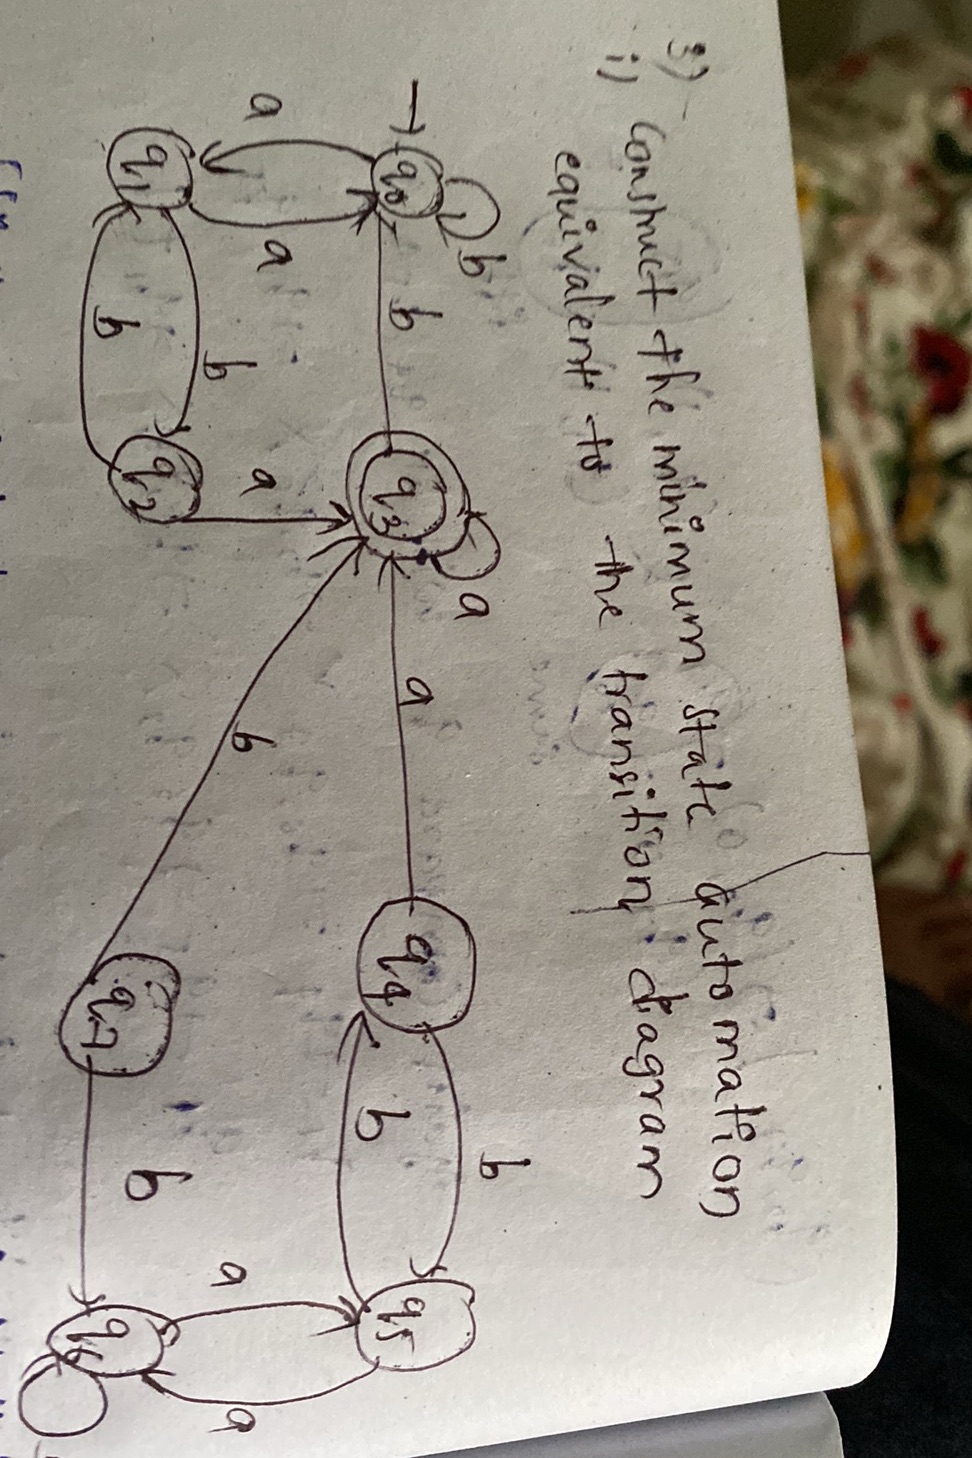 3)
i) construct the minimum state automation
equivalent to the transition diagram
b
a
q0
b
q3
a
q4
b
b
q5
a
a
q1
b
b
q2
a
b
q7
b
a
a
q6